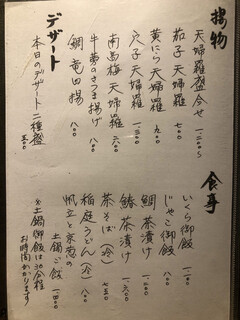 揚物
天婦羅盛合せ 一、三〇〇〜
茄子天婦羅 七〇〇
黄にら天婦羅 九〇〇
穴子天婦羅 一、三〇〇
南高梅天婦羅 六〇〇
牛蒡のさつま揚げ 八〇〇
鯛竜田揚 八〇〇
デザート
本日のデザート二種盛 五〇〇
食事
いくら御飯 一、一〇〇
じゃこ御飯 八〇〇
鯛茶漬け 一、二〇〇
鰻茶漬け 一、六〇〇
茶そば(冷) 七五〇
稲庭うどん(冷) 八〇〇
帆立と京葱の
土鍋ご飯 一、八〇〇
※土鍋御飯は30分程
お時間かかります